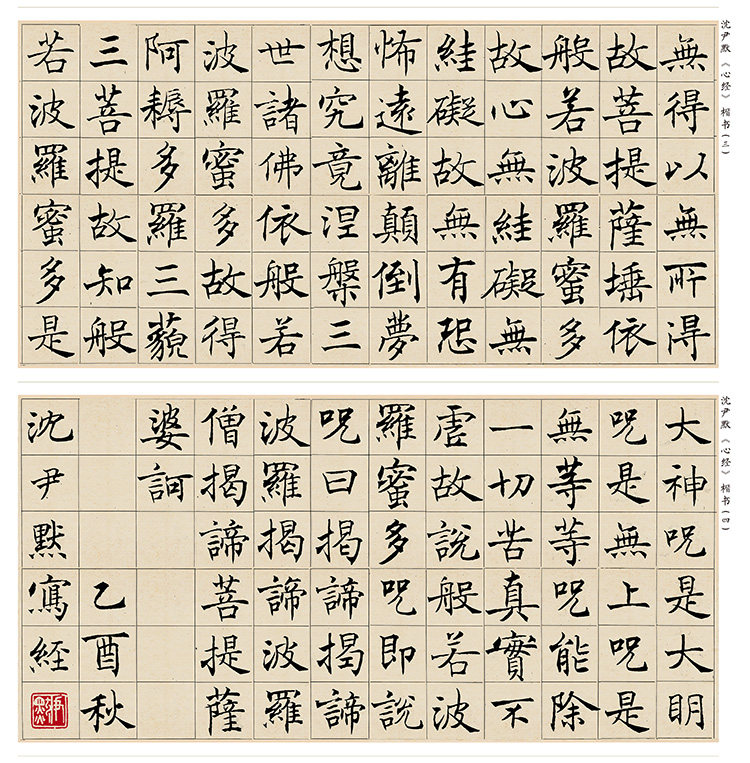 沈尹默《心经》楷书(三)
無得以無所得
故菩提薩埵依
般若波羅蜜多
故心無絓礙無
絓礙故無有恐
怖遠離顛倒夢
想究竟涅槃三
世諸佛依般若
波羅蜜多故得
阿耨多羅三藐
三菩提故知般
若波羅蜜多是
沈尹默《心经》楷书(四)
大神呪是大明
呪是無上呪是
無等等呪能除
一切苦真實不
虛故說般若波
羅蜜多呪即說
呪曰揭諦揭諦
波羅揭諦波羅
僧揭諦菩提薩
婆訶
乙酉秋
沈尹默寫經